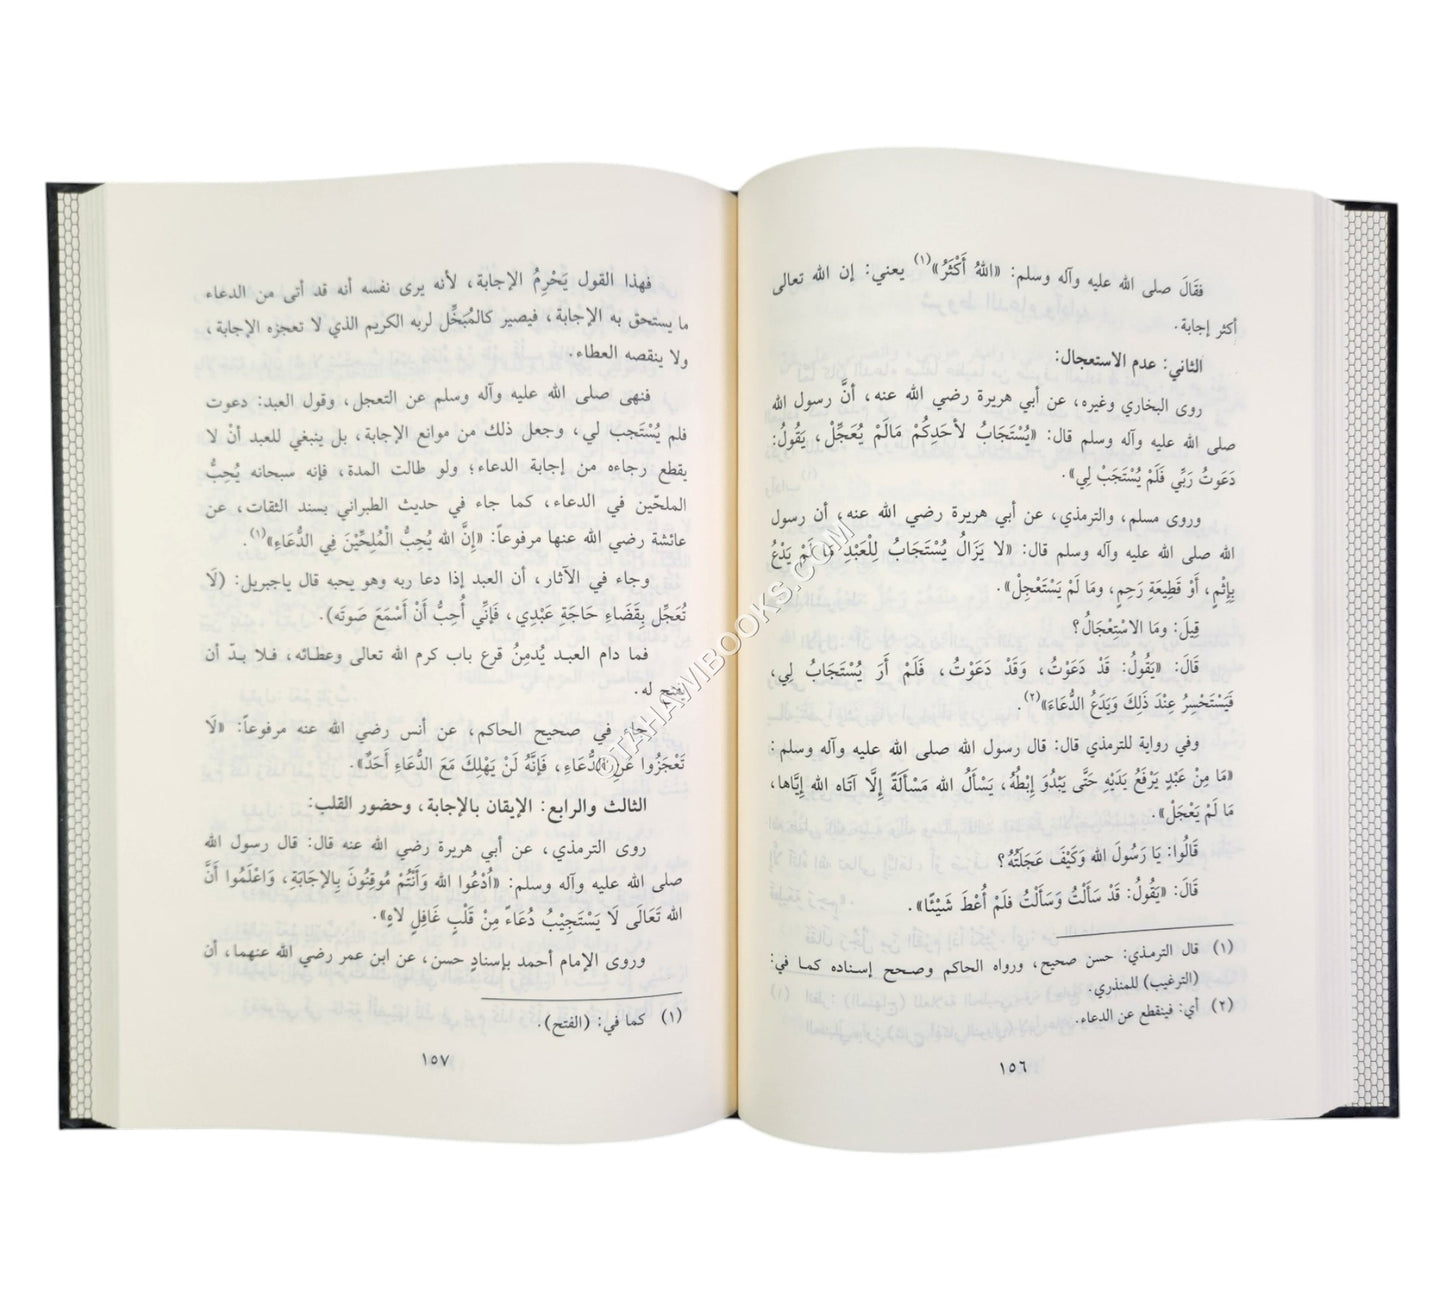 فقَالَ صلى الله عليه وآله وسلم: «اللهُ أَكْثَرُ»(١) يعني: إن الله تعالى
أكثر إجابة.
الثاني: عدم الاستعجال:
روى البخاري وغيره، عن أبي هريرة رضي الله عنه، أنَّ رسول الله
صلى الله عليه وآله وسلم قال: «يُسْتَجَابُ لأَحَدِكُمْ مَالَمْ يُعَجِّلْ، يَقُولُ:
دَعَوتُ رَبِّي فَلَمْ يُسْتَجَبْ لِي».
وروى مسلم، والترمذي، عن أبي هريرة رضي الله عنه، أن رسول
الله صلى الله عليه وآله وسلم قال: «لا يَزَالُ يُسْتَجَابُ لِلْعَبْدِ مَا لَمْ يَدْعُ
بِإِثْمٍ، أَوْ قَطِيعَةِ رَحِمٍ، ومَا لَمْ يَسْتَعْجِلْ».
قِيلَ: ومَا الاسْتِعْجَالُ؟
قَالَ: «يَقُولُ: قَدْ دَعَوْتُ، وَقَدْ دَعَوْتُ، فَلَمْ أَرَ يُسْتَجَابُ لِي،
فَيَسْتَحْسِرُ عِنْدَ ذَلِكَ وَيَدَعُ الدُّعَاءَ»(٢).
وفي رواية للترمذي قال: قال رسول الله صلى الله عليه وآله وسلم:
«مَا مِنْ عَبْدٍ يَرْفَعُ يَدَيْهِ حَتَّى يَبْدُوَ إِبْطُهُ، يَسْأَلُ الله مَسْأَلَةً إِلَّا آتَاه الله إِيَّاها،
مَا لَمْ يَعْجَلْ».
قَالُوا: يَا رَسُولَ الله وَكَيْفَ عَجَلَتُهُ؟
قَالَ: «يَقُولُ: قَدْ سَأَلْتُ وَسَأَلْتُ فلَمْ أُعْطَ شَيْئًا».
(١) قال الترمذي: حسن صحيح، ورواه الحاكم وصحح إسناده كما في:
(الترغيب) للمنذري.
(٢) أي: فينقطع عن الدعاء.
١٥٦
فهذا القول يَحْرِمُ الإجابة، لأنه يرى نفسه أنه قد أتى من الدعاء
ما يستحق به الإجابة، فيصير كالمُبَخِّل لربه الكريم الذي لا تعجزه الإجابة،
ولا ينقصه العطاء.
فنهى صلى الله عليه وآله وسلم عن التعجل، وقول العبد: دعوت
فلم يُسْتَجب لي، وجعل ذلك من موانع الإجابة، بل ينبغي للعبد أنْ لا
يقطع رجاءه من إجابة الدعاء؛ ولو طالت المدة، فإنه سبحانه يُحِبُّ
الملحّين في الدعاء، كما جاء في حديث الطبراني بسند الثقات، عن
عائشة رضي الله عنها مرفوعاً: «إِنَّ الله يُحِبُّ الْمُلِحِّيْنَ فِي الدُّعَاءِ»(١).
وجاء في الآثار، أن العبد إذا دعا ربه وهو يحبه قال ياجبريل: (لَا
تُعَجِّل بِقَضَاءِ حَاجَةِ عَبْدِي، فَإِنِّي أُحِبُّ أَنْ أَسْمَعَ صَوتَه).
فما دام العبد يُدمِنُ قرع باب كرم الله تعالى وعطائه، فلا بدّ أن
يفتح له.
جاء في صحيح الحاكم، عن أنس رضي الله عنه مرفوعاً: «لَا
تَعْجَزُوا عَنِ الدُّعَاءِ، فَإِنَّهُ لَنْ يَهْلِكَ مَعَ الدُّعَاءِ أَحَدٌ».
الثالث والرابع: الإيقان بالإجابة، وحضور القلب:
روى الترمذي، عن أبي هريرة رضي الله عنه قال: قال رسول الله
صلى الله عليه وآله وسلم: «اُدْعُوا الله وَأَنْتُمْ مُوقِنُونَ بِالإِجَابَةِ، وَاعْلَمُوا أَنَّ
الله تَعَالَى لَا يَسْتَجِيْبُ دُعَاءً مِنْ قَلْبٍ غَافِلٍ لاَهٍ».
وروى الإمام أحمد بإسنادٍ حسن، عن ابن عمر رضي الله عنهما، أن
(١) كما في: (الفتح).
١٥٧
©TAHAWIBOOKS.COM